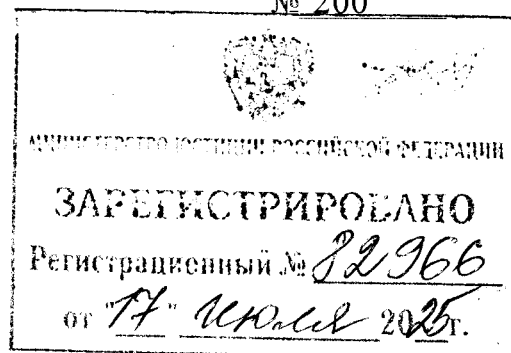 № 200
МИНИСТЕРСТВО ЮСТИЦИИ РОССИЙСКОЙ ФЕДЕРАЦИИ
ЗАРЕГИСТРИРОВАНО
Регистрационный № 82966
от "17" июля 2025г.